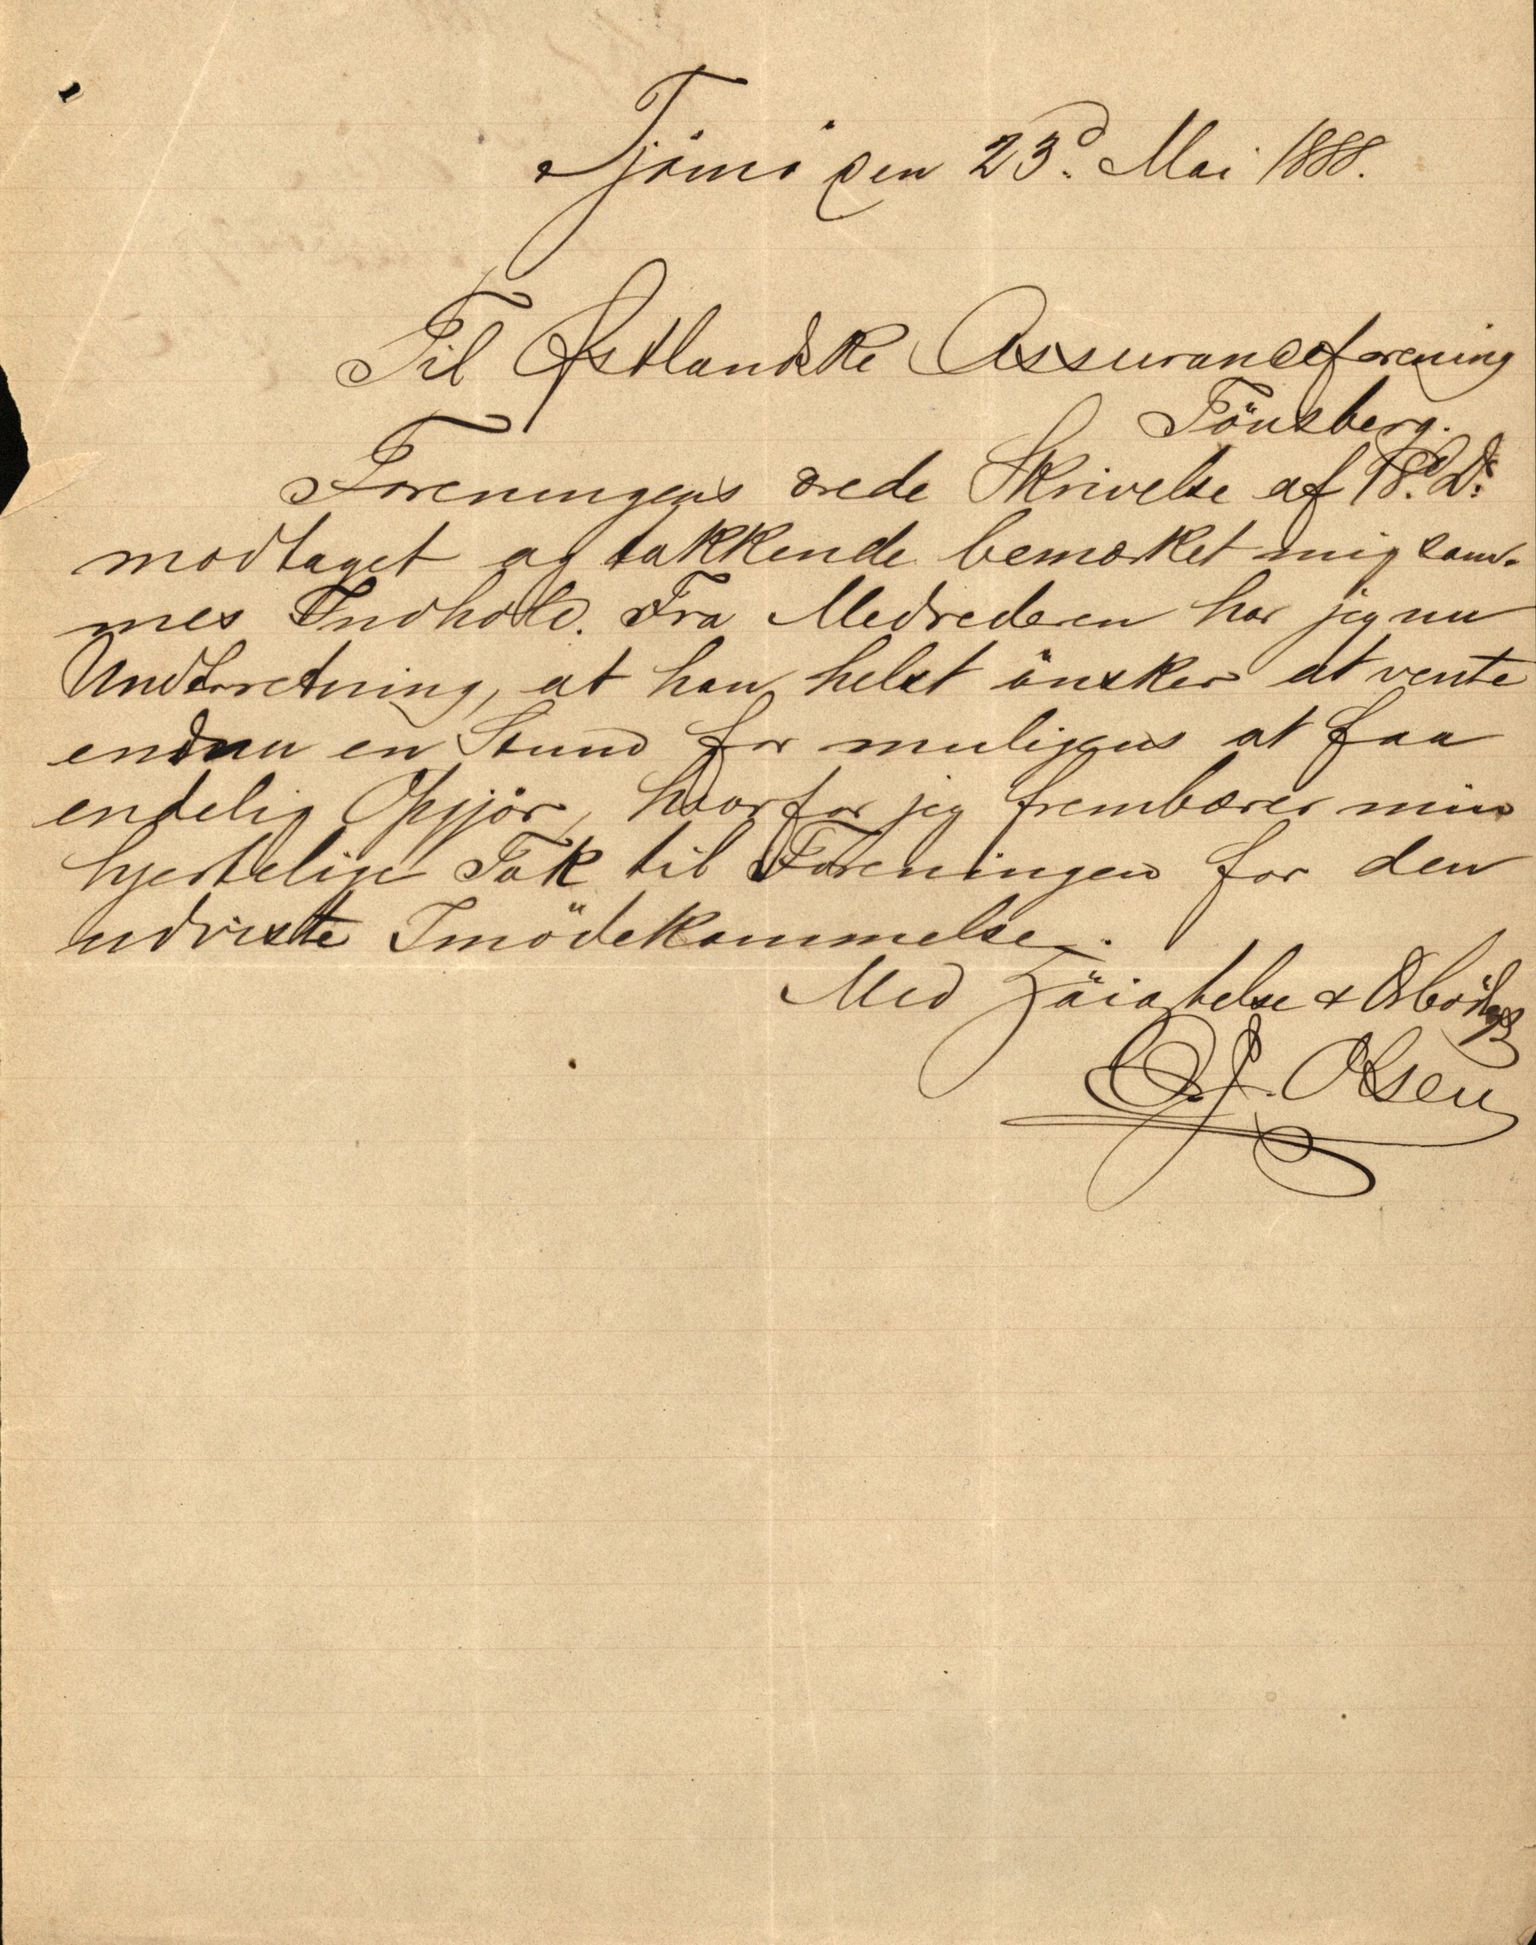 Tjömö den 23d. Mai 1888.
Til Østlandske Assuranceforening
Tönsberg.
Foreningens ærede Skrivelse af 18d. Ds.
modtaget og takkende bemærket mig sam-
mes Indhold. Fra Medrederen har jeg nu
Underretning, at han helst önsker at vente
endnu en Stund for muligens at faa
endelig Opgjör, hvorfor jeg frembærer min
hjertelige Tak til Foreningen for den
udviste Imödekommelse.
Med Höiagtelse & Ærbödigst
Olsen